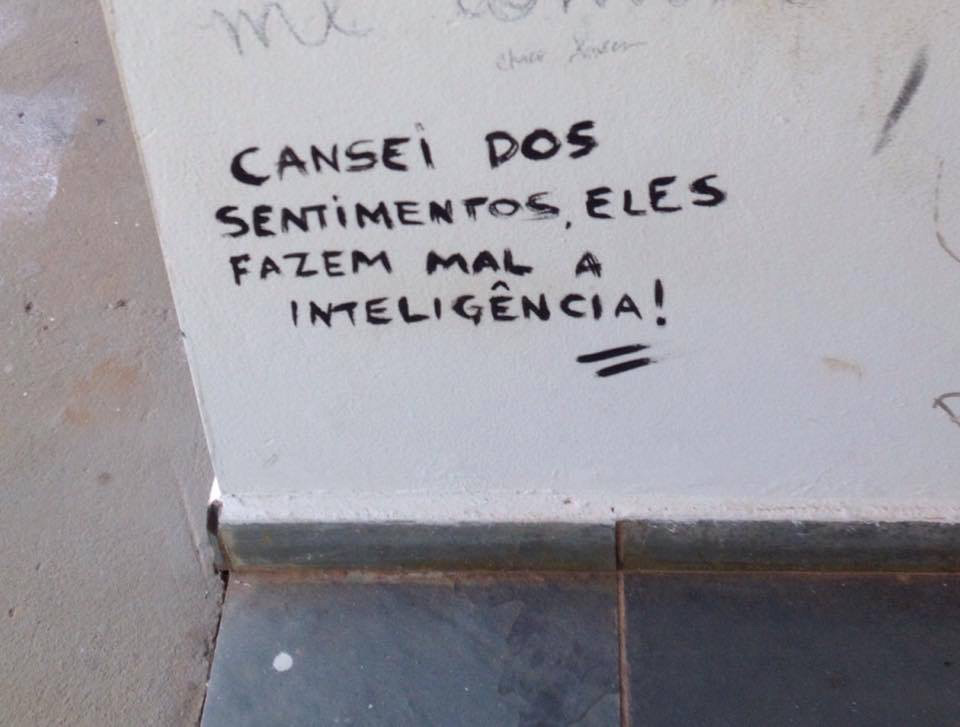 me
CANSEi DOS
SENTiMENTOS, ELES
FAZEM MAL A
INTELIGÊNCIA!